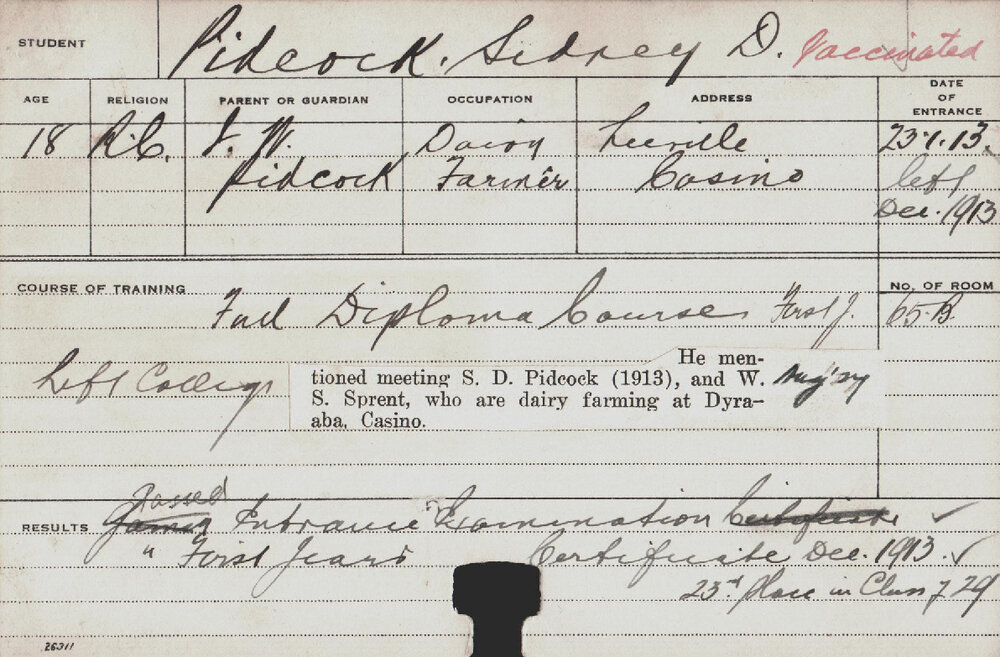 STUDENT Pidcock. Sidney D. Vaccinated
AGE RELIGION PARENT OR GUARDIAN OCCUPATION ADDRESS DATE OF ENTRANCE
18 R.C. J. W. Dairy Leeville 23.1.13.
Pidcock Farmer Casino left
Dec. 1913
COURSE OF TRAINING NO. OF ROOM
Full Diploma Course First Y. 65.B.
Left College
He men-
tioned meeting S. D. Pidcock (1913), and W.
S. Sprent, who are dairy farming at Dyra-
aba, Casino.
Passed
RESULTS Entrance Examination Certificate ✓
" First Years Certificate Dec. 1913. ✓
23rd Place in Class of 29
26311